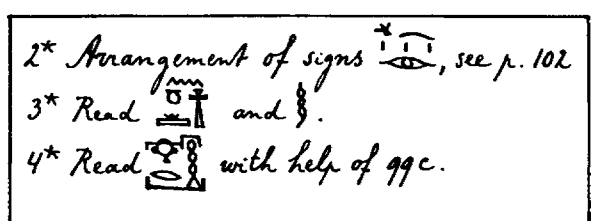 2* Arrangement of signs , see p. 102
3* Read and .
4* Read with help of 99c.